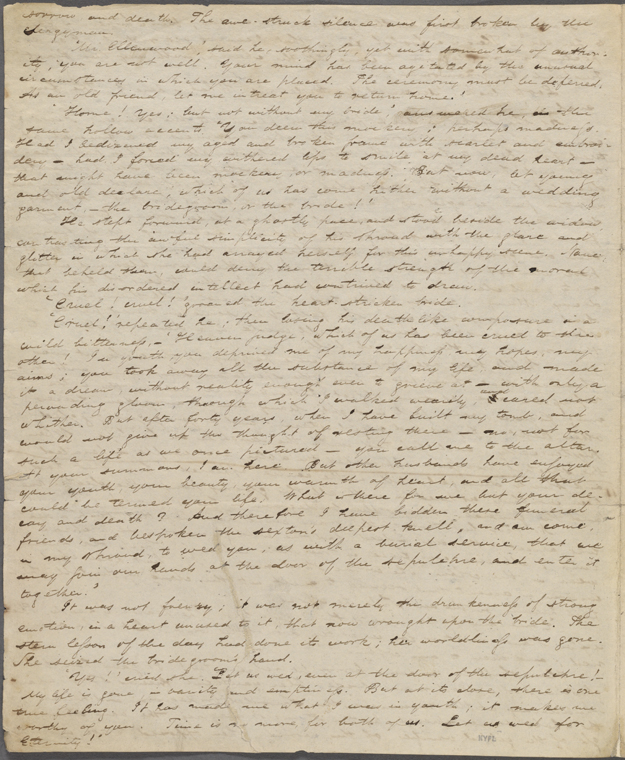 sorrow and death. The awe-struck silence was first broken by the
Clergyman.
'Mr. Ellenwood,' said he, soothingly, yet with somewhat of author-
ity, 'you are not well. Your mind has been agitated by the unusual
circumstances in which you are placed. The ceremony must be deferred.
As an old friend, let me intreat you to return home.'
'Home! Yes; but not without my bride,' answered he, in the
same hollow accents. 'You deem this mockery; perhaps madness.
Had I bedizened my aged and broken frame with scarlet and embroi-
dery – had I forced my withered lips to smile at my dead heart –
that might have been mockery, or madness. But now, let young
and old declare, which of us has come hither without a wedding
garment, – the bridegroom, or the bride!'
He stept forward, at a ghostly pace, and stood beside the widow
contrasting the awful simplicity of his shroud with the glare and
glitter in which she had arrayed herself for this unhappy scene. None
that beheld them, could deny the terrible strength of the moral
which his disordered intellect had contrived to draw.
'Cruel! cruel!' groaned the heart-stricken bride.
'Cruel!' repeated he; then losing his deathlike composure in a
wild bitterness, – 'Heaven judge, which of us has been cruel to the
other! In youth, you deprived me of my happiness, my hopes, my
aims; you took away all the substance of my life, and made
it a dream, without reality enough even to grieve at – with only a
pervading gloom, through which I walked wearily, cared not
whither. But after forty years, when I have built my tomb, and
would not give up the thought of resting there – no, not for
such a life as we once pictured – you call me to the altar.
At your summons, I am here. But other husbands have enjoyed
your youth, your beauty, your warmth of heart, and all that
could be termed your life. What is there for me, but your de-
cay and death? And therefore I have bidden these funeral
friends, and bespoken the sexton's deepest knell, and am come,
in my shroud, to wed you, as with a burial service, that we
may join our hands at the door of the sepulchre, and enter it
together.'
It was not frenzy; it was not merely the drunkenness of strong
emotion, in a heart unused to it, that now wrought upon the bride. The
stern lesson of the day had done its work; her worldliness was gone.
She seized the bridegroom's hand.
'Yes!' cried she. 'Let us wed, even at the door of the sepulchre! –
My life is gone, in vanity and emptiness. But at its close, there is one
true feeling. It has made me what I was in youth; it makes me
worthy of you. Time is no more, for both of us. Let us wed for
Eternity!'
NYPL